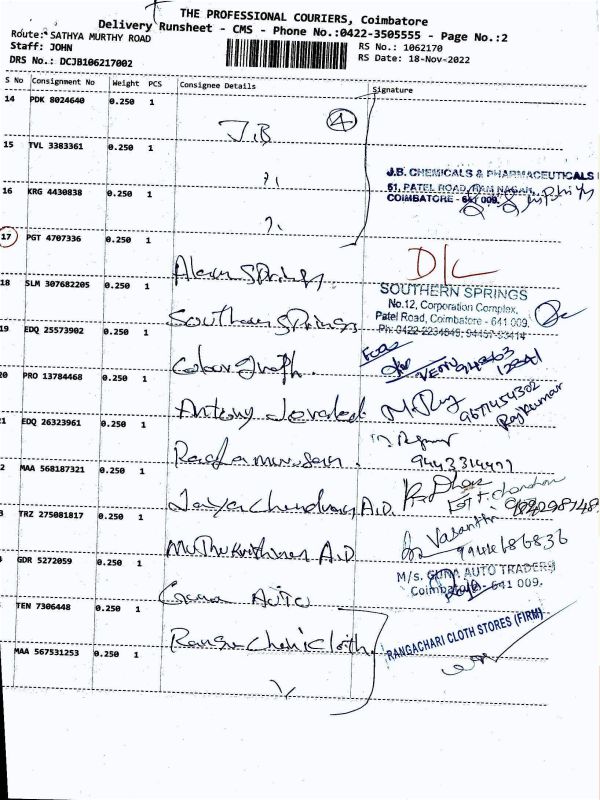 THE PROFESSIONAL COURIERS, Coimbatore
Delivery Runsheet - CMS - Phone No.:0422-3505555 - Page No.:2
Route: SATHYA MURTHY ROAD
Staff: JOHN
DRS No.: DCJB106217002
RS No.: 1062170
RS Date: 18-Nov-2022
S No Consignment No Weight PCS Consignee Details Signature
14 PDK 8024640 0.250 1 J.B 4
15 TVL 3383361 0.250 1 ''
J.B. CHEMICALS & PHARMACEUTICALS
61, PATEL ROAD, RAM NAGAR,
COIMBATORE - 641 009.
16 KRG 4430838 0.250 1 ''
17 PGT 4707336 0.250 1 Springs D/L
18 SLM 307682205 0.250 1 Southern Springs
SOUTHERN SPRINGS
No.12, Corporation Complex,
Patel Road, Coimbatore - 641 009.
Ph: 0422-2234849, 94437-33414
19 EDQ 25573902 0.250 1
20 PRO 13784468 0.250 1 Antony
9677454302
Rajkumar
21 EDQ 26323961 0.250 1
9443314477
2 MAA 568187321 0.250 1 Jaya Chandran A.D.
3 TRZ 275081817 0.250 1 Muthu Krishnan A.D
Vasanthi
9944686836
GDR 5272059 0.250 1 Guna Auto
M/s. GUNA AUTO TRADERS
Coimbatore - 641 009.
TEN 7306448 0.250 1 cloth
RANGACHARI CLOTH STORES (FIRM)
MAA 567531253 0.250 1 ''